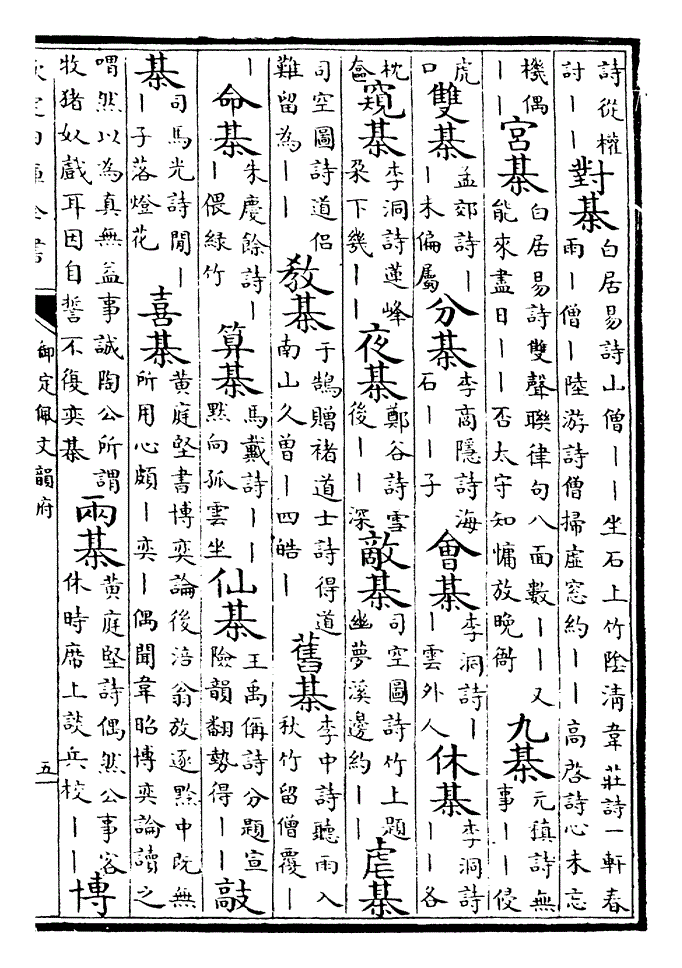 詩從權討丨丨對棊白居易詩山僧丨丨坐石上竹陰清韋莊詩一軒春雨丨僧丨陸游詩僧掃虛窓約丨丨高啓詩心未忘
機偶丨丨宮棊白居易詩雙聲聯律句八面數丨丨又能來盡日丨丨否太守知慵放晚衙九棊元稹詩無事丨丨侵
虎口雙棊孟郊詩丨丨未偏屬分棊李商隱詩海石丨丨子會棊李洞詩丨丨雲外人休棊李洞詩丨丨各
枕奩窺棊李洞詩蓮峰朶下幾丨丨夜棊鄭谷詩雪後丨丨深敵棊司空圖詩竹上題幽夢溪邊約丨丨虐棊
司空圖詩道侶難留為丨丨教棊于鵠贈褚道士詩得道南山久曽丨四皓丨舊棊李中詩聽雨入秋竹留僧覆丨
丨命棊朱慶餘詩丨丨偎緑竹算棊馬戴詩丨丨黙向孤雲坐仙棊王禹偁詩分題宣險韻翻勢得丨丨敲
棊司馬光詩閒丨丨子落燈花喜棊黃庭堅書博奕論後涪翁放逐黔中既無所用心頗丨奕丨偶聞韋昭博奕論讀之
喟然以為真無益事誠陶公所謂牧猪奴戲耳因自誓不復奕棊兩棊黃庭堅詩偶然公事客休時席上談兵校丨丨博
欽定四庫全書
御定佩文韻府
五